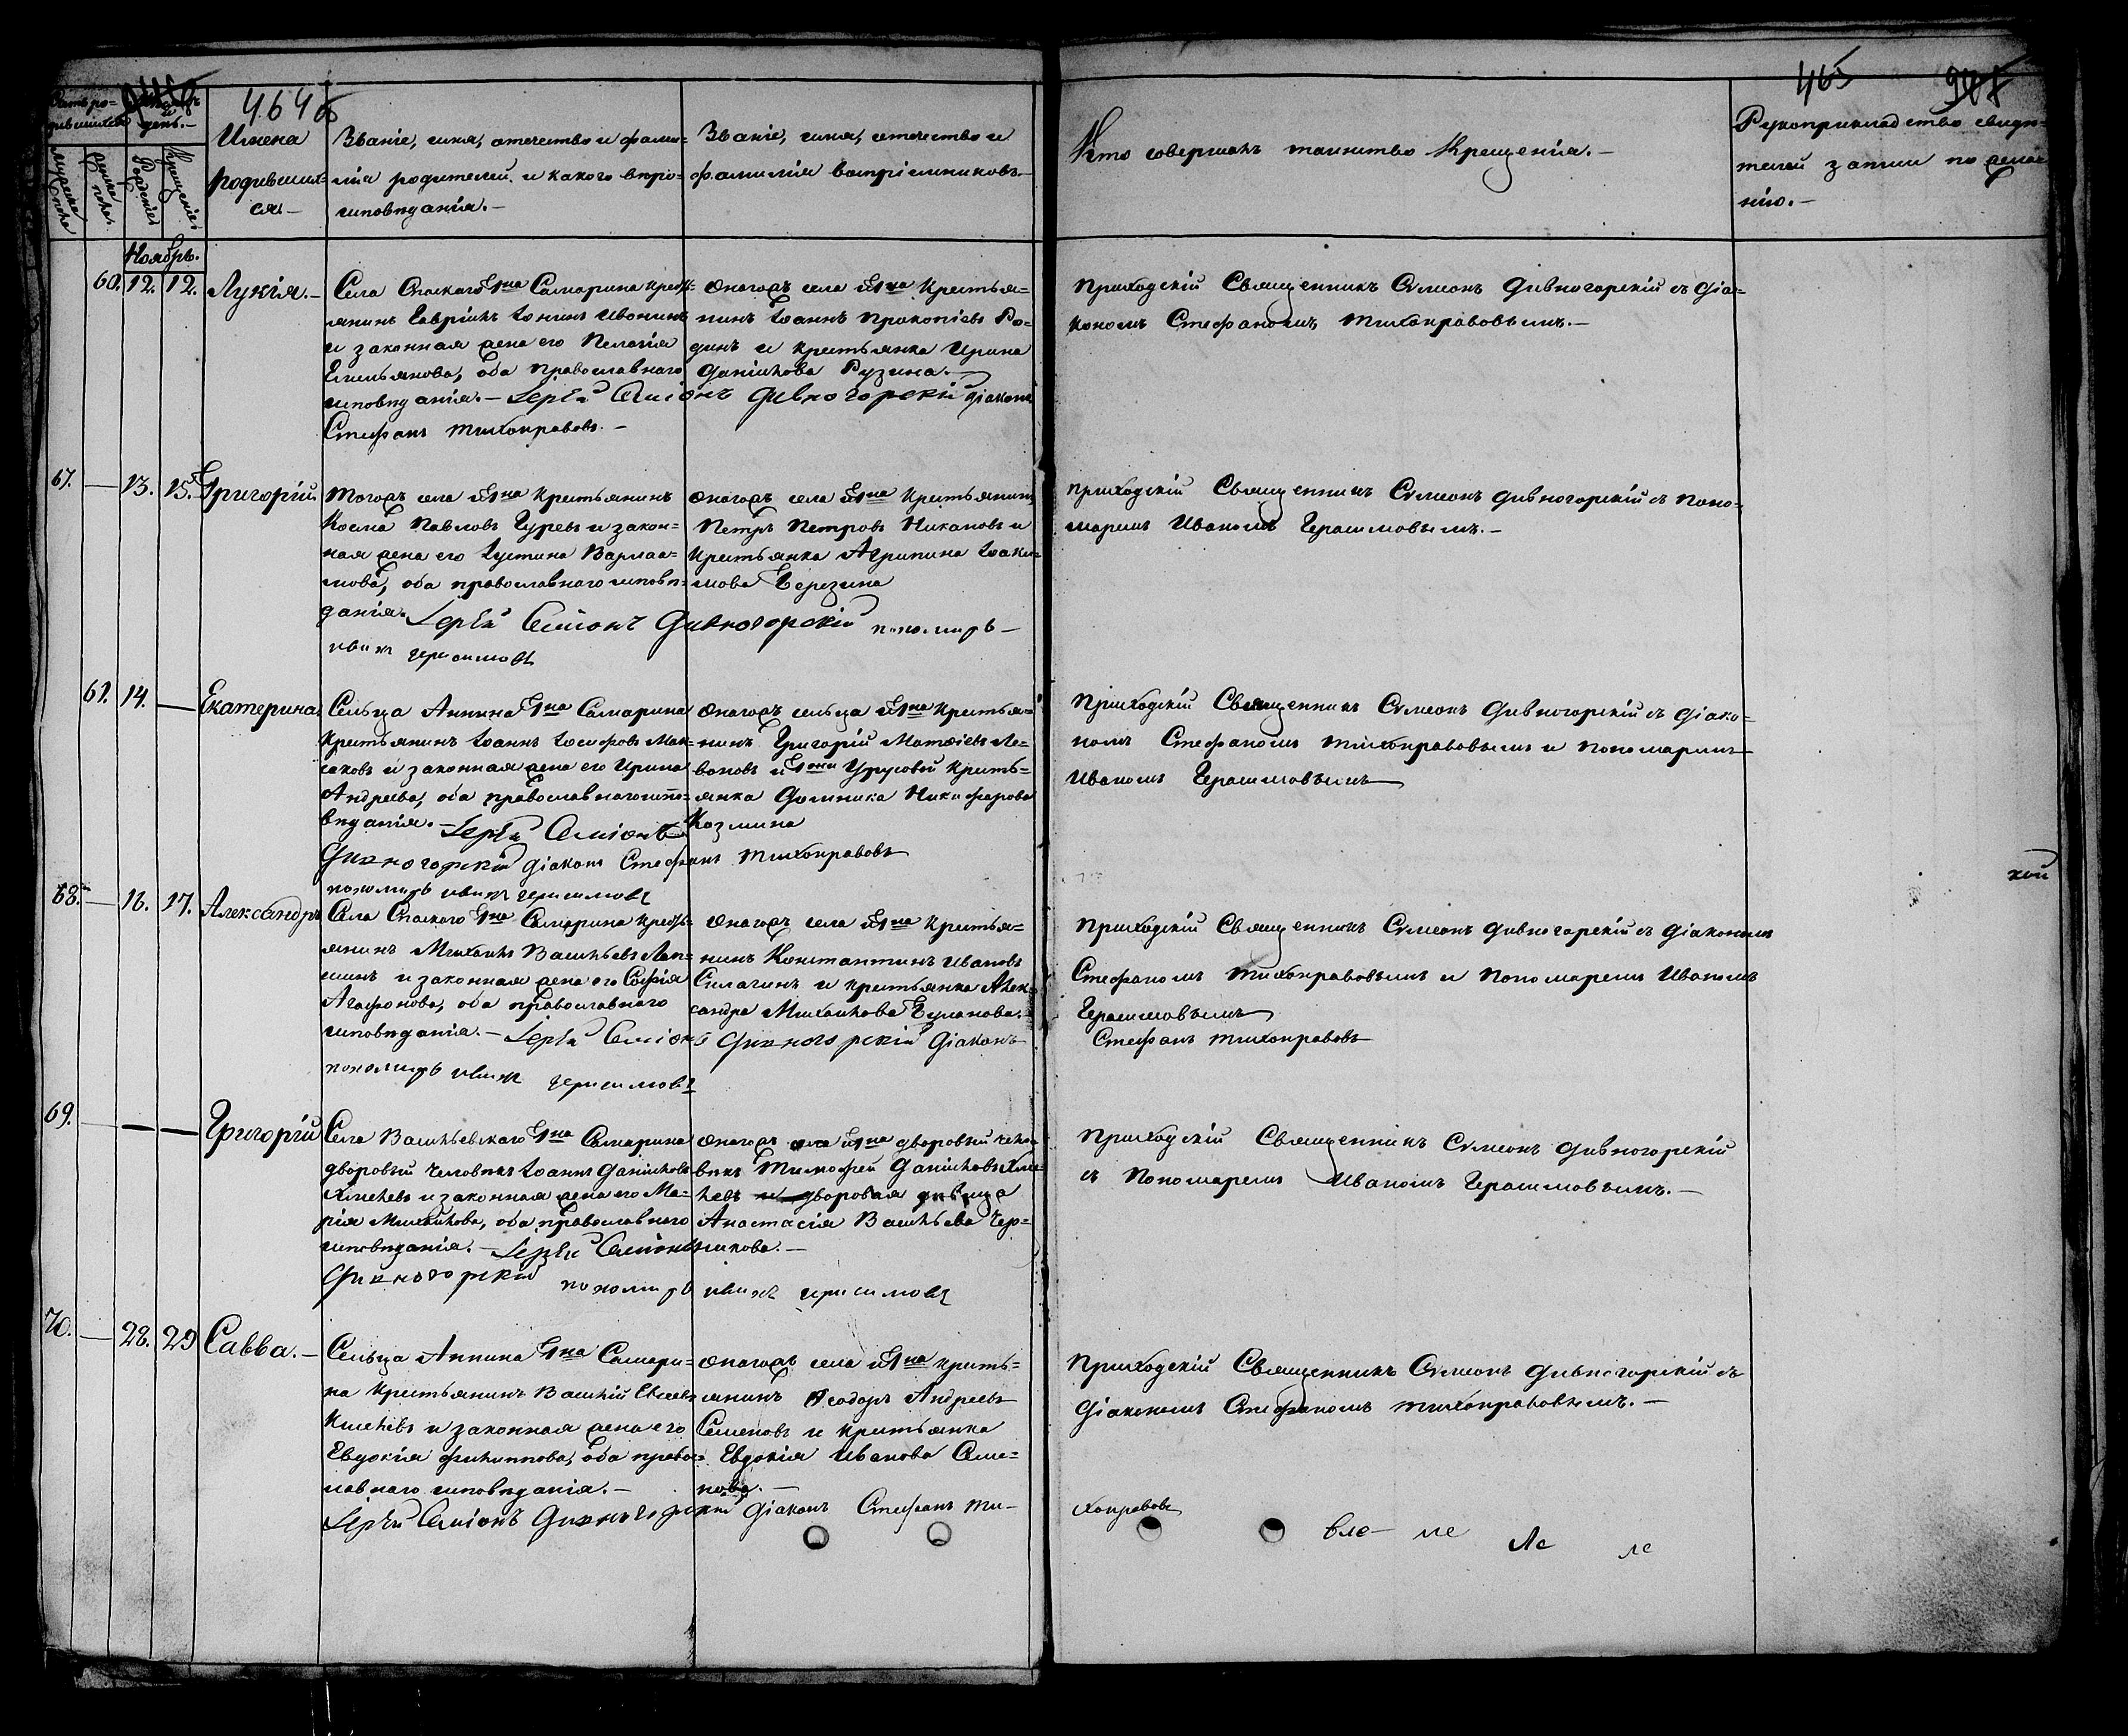 464 об
465
Счетъ ро-
дившихся
Мѣсяцъ
и
день.–
мужеска
пола
женска
пола.
Рожденіе
Крещеніе
Имена
родивших-
ся.–
Званіе, имя, отечество и фами-
лія родителей, и какого вѣро-
исповѣданія.–
Званіе, имя, отечество и
фамилія воспріемниковъ
Кто совершалъ таинство Крещенія.–
Рукоприкладство свидѣ-
телей записи по жела-
нію.–
Ноябрь.
60. 12. 12. Лукія.–
Села Спаскаго Г на Самарина кресть-
янинъ Гавріилъ Іонинъ Ивонинъ
и законная жена его Пелагія
Емельянова, оба православнаго
исповѣданія.– Іерей Симеонъ Дивногорскій Діаконъ
Стефанъ Тихонравовъ.–
Онагожъ села и Г на Крестья-
нинъ Іоаннъ Прокопіевъ Ро-
динъ и крестьянка Ирина
Данилова Рузина.–
Приходскій Священникъ Сѵмеонъ Дивногорскій съ Діа-
кономъ Стефаномъ Тихонравовымъ.–
67. — 13. 15. Григорій
Тогожъ села и Г на Крестьянинъ
Косма Павловъ Гуревъ и закон-
ная жена его Іустина Варлаа-
мова, оба православнаго исповѣ-
данія. Іерей Симеонъ Дивногорскій пономарь –
Иванъ Герасимовъ
Онагожъ села и Г на Крестьянинъ
Петръ Петровъ Никановъ и
Крестьянка Агрипина Іоаки-
мова Березина
Приходскій Священникъ Сѵмеонъ Дивногорскій съ Поно-
маремъ Иваномъ Герасимовымъ.–
61. 14. — Екатерина
Сельца Аннина Г на Самарина
Крестьянинъ Іоаннъ Іосифовъ Мак-
саковъ и законная жена его Ирина
Андреева, оба православнаго испо-
вѣданія.– Іерей Симеонъ
Дивногорскій Діаконъ Стефанъ Тихонравовъ
пономарь Иванъ Герасимовъ
Онагожъ сельца и Г на Крестья-
нинъ Григорій Матвѣевъ Ле-
воновъ и Г жи Урусовой Кресть-
янка Домника Никифорова
Козмина
Приходскій Священникъ Сѵмеонъ Дивногорскій съ Діако-
номъ Стефаномъ Тихонравовымъ и Пономаремъ
Иваномъ Герасимовымъ
68. — 16. 17. Александръ
Села Спаскаго Г на Самарина Кресть-
янинъ Михаилъ Васильевъ Лап-
шинъ и законная жена его Софія
Агафонова, оба православнаго
исповѣданія.– Іерей Симеонъ Дивногорскій Діаконъ
пономарь Иванъ Герасимовъ
Онагожъ села и Г на Крестья-
нинъ Константинъ Ивановъ
Силагинъ и крестьянка Алек-
сандра Михаилова Буланова.–
Приходскій Священникъ Сѵмеонъ Дивногорскій съ Діакономъ
Стефаномъ Тихонравовымъ и Пономаремъ Иваномъ
Герасимовымъ
Стефанъ Тихонравовъ
69. — — — Григорій
Села Васильевскаго Г на Самарина
дворовый человѣкъ Іоаннъ Даниловъ
Хмелевъ и законная жена его Ма-
рія Михаилова, оба православнаго
исповѣданія.– Іерей Симеонъ
Дивногорскій пономарь Иванъ Герасимовъ
Онагожъ села и Г на дворовый чело-
вѣкъ Тимофей Даниловъ Хме-
левъ и дворовая дѣвица
Анастасія Васильева Чер-
никова.–
Приходскій Священникъ Сѵмеонъ Дивногорскій
съ Пономаремъ Иваномъ Герасимовымъ.–
70. — 28. 29 Савва.–
Сельца Аннина Г на Самари-
на Крестьянинъ Василій Евсеевъ
Киселевъ и законная жена его
Евдокія Филиппова, оба право-
славнаго исповѣданія.–
Іерей Симеонъ Дивногорскій Діаконъ Стефанъ Ти-
хонравовъ
Онагожъ села и Г на кресть-
янинъ Ѳеодоръ Андреевъ
Семеновъ и крестьянка
Евдокія Иванова Семе-
нова.–
Приходскій Священникъ Сѵмеонъ Дивногорскій съ
Діакономъ Стефаномъ Тихонравовымъ.–